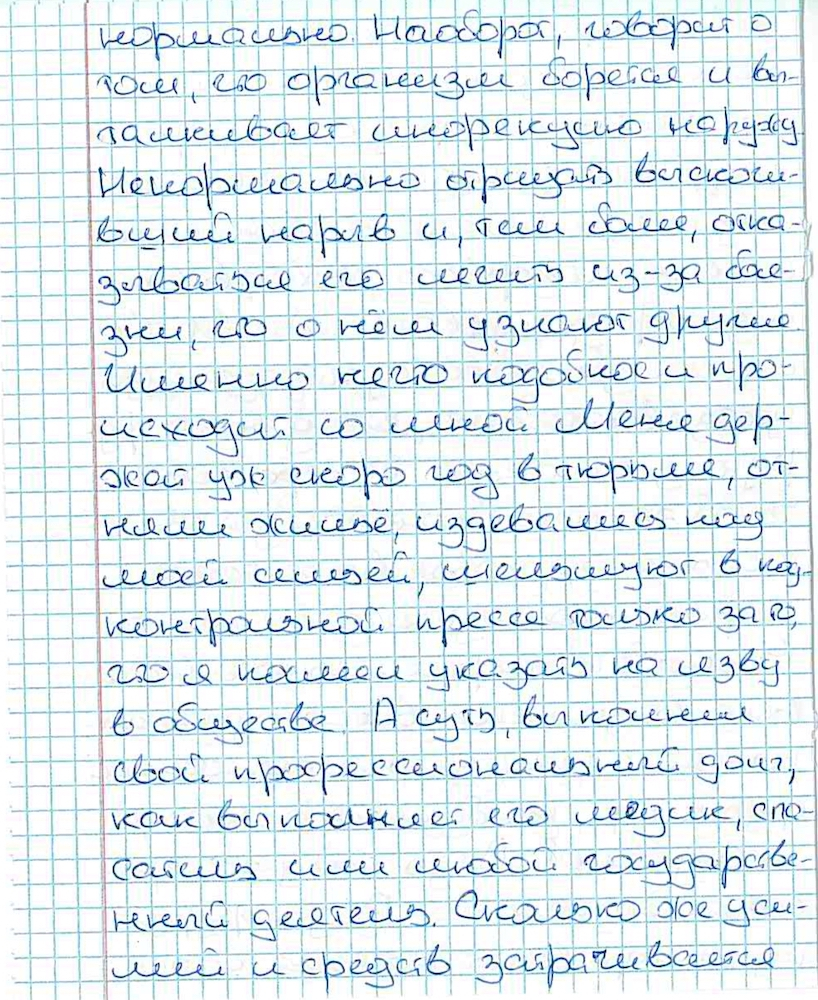 нормально. Наоборот, говорит о
том, что организм борется и вы-
талкивает инородную наружу.
Ненормально отрицать выскочи-
вший нарыв и, тем более, отка-
зываться его лечить из-за бое-
зни, что о нём узнают другие.
Именно нечто подобное и про-
исходит со мной. Меня дер-
жат уж скоро год в тюрьме, от-
няли жильё, издевались над
моей семьёй, шельмуют в под-
контрольной прессе только за то,
что я посмел указать на язву
в обществе. А суть, выполнил
свой профессиональный долг,
как выполняет его медик, спа-
сатель или любой государстве-
нный деятель. Сколько же уси-
лий и средств затрачивается